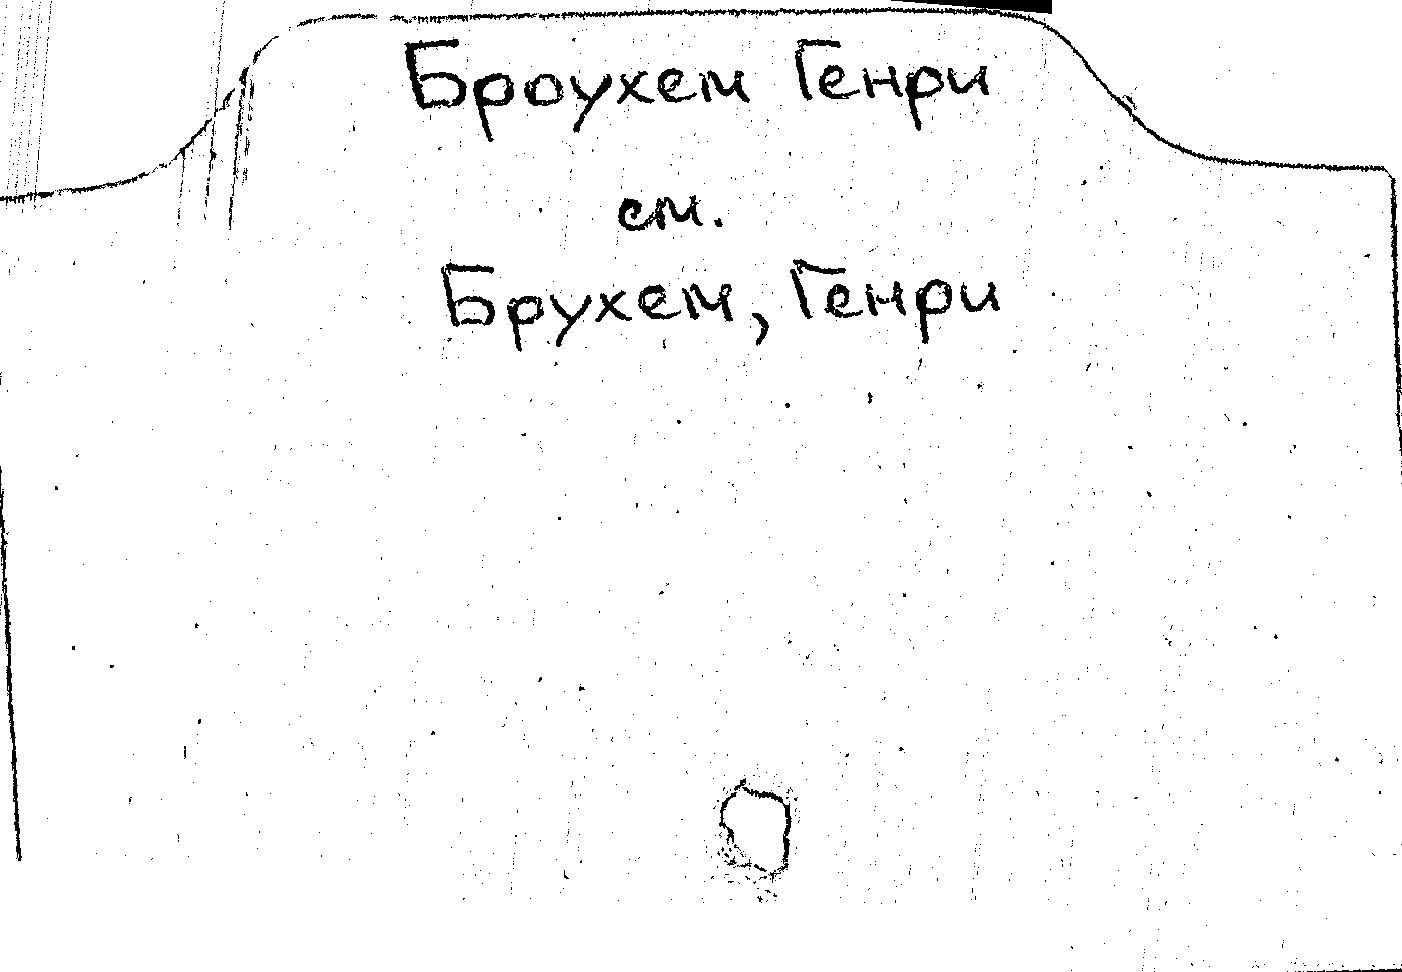 Броухем Генри
см.
Брухем, Генри